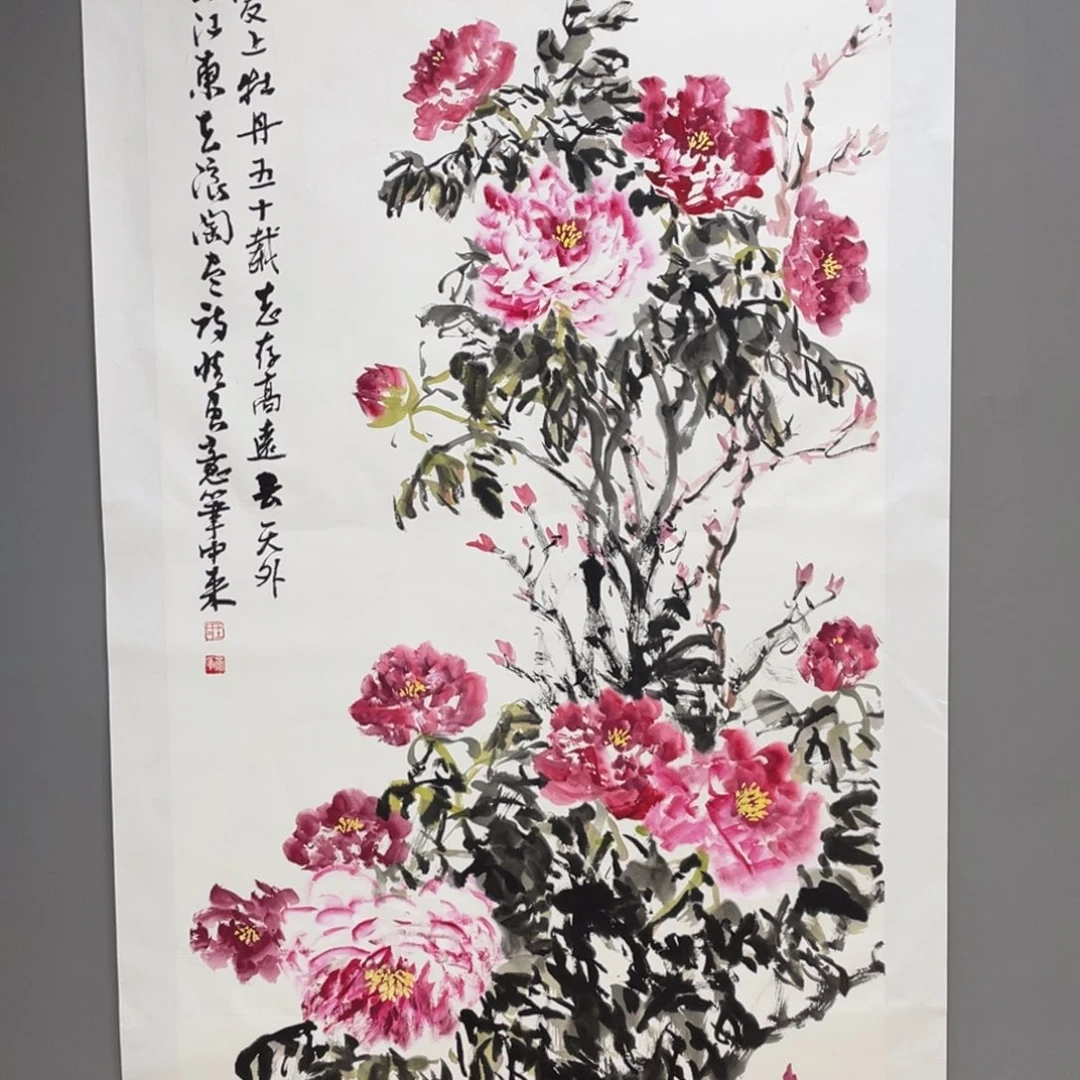 爱上牡丹五十载志存高远云天外
江东去浪淘尽诗情画意笔中来